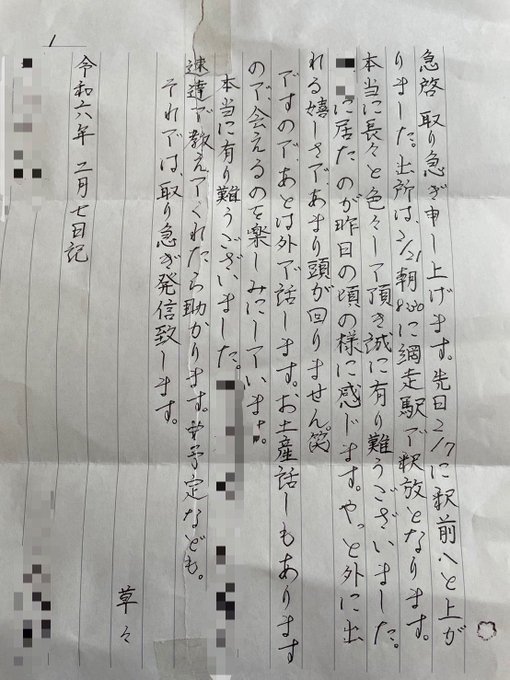 急啓 取り急ぎ申し上げます。先日2/7に釈前へと上が
りました。出所は、2/21朝8:00に網走駅で釈放となります。
本当に長々と色々して頂き誠に有り難うございました。
に居たのが昨日の頃の様に感じます。やっと外に出
れる嬉しさで、あまり頭が回りません。笑
ですので、あとは外で話します。お土産話しもあります
ので、会えるのを楽しみにしています。
本当に有り難うございました。
速達で教えてくれたら助かります。予定なども。
それでは、取り急ぎ発信致します。
草々
令和六年 二月七日記
1